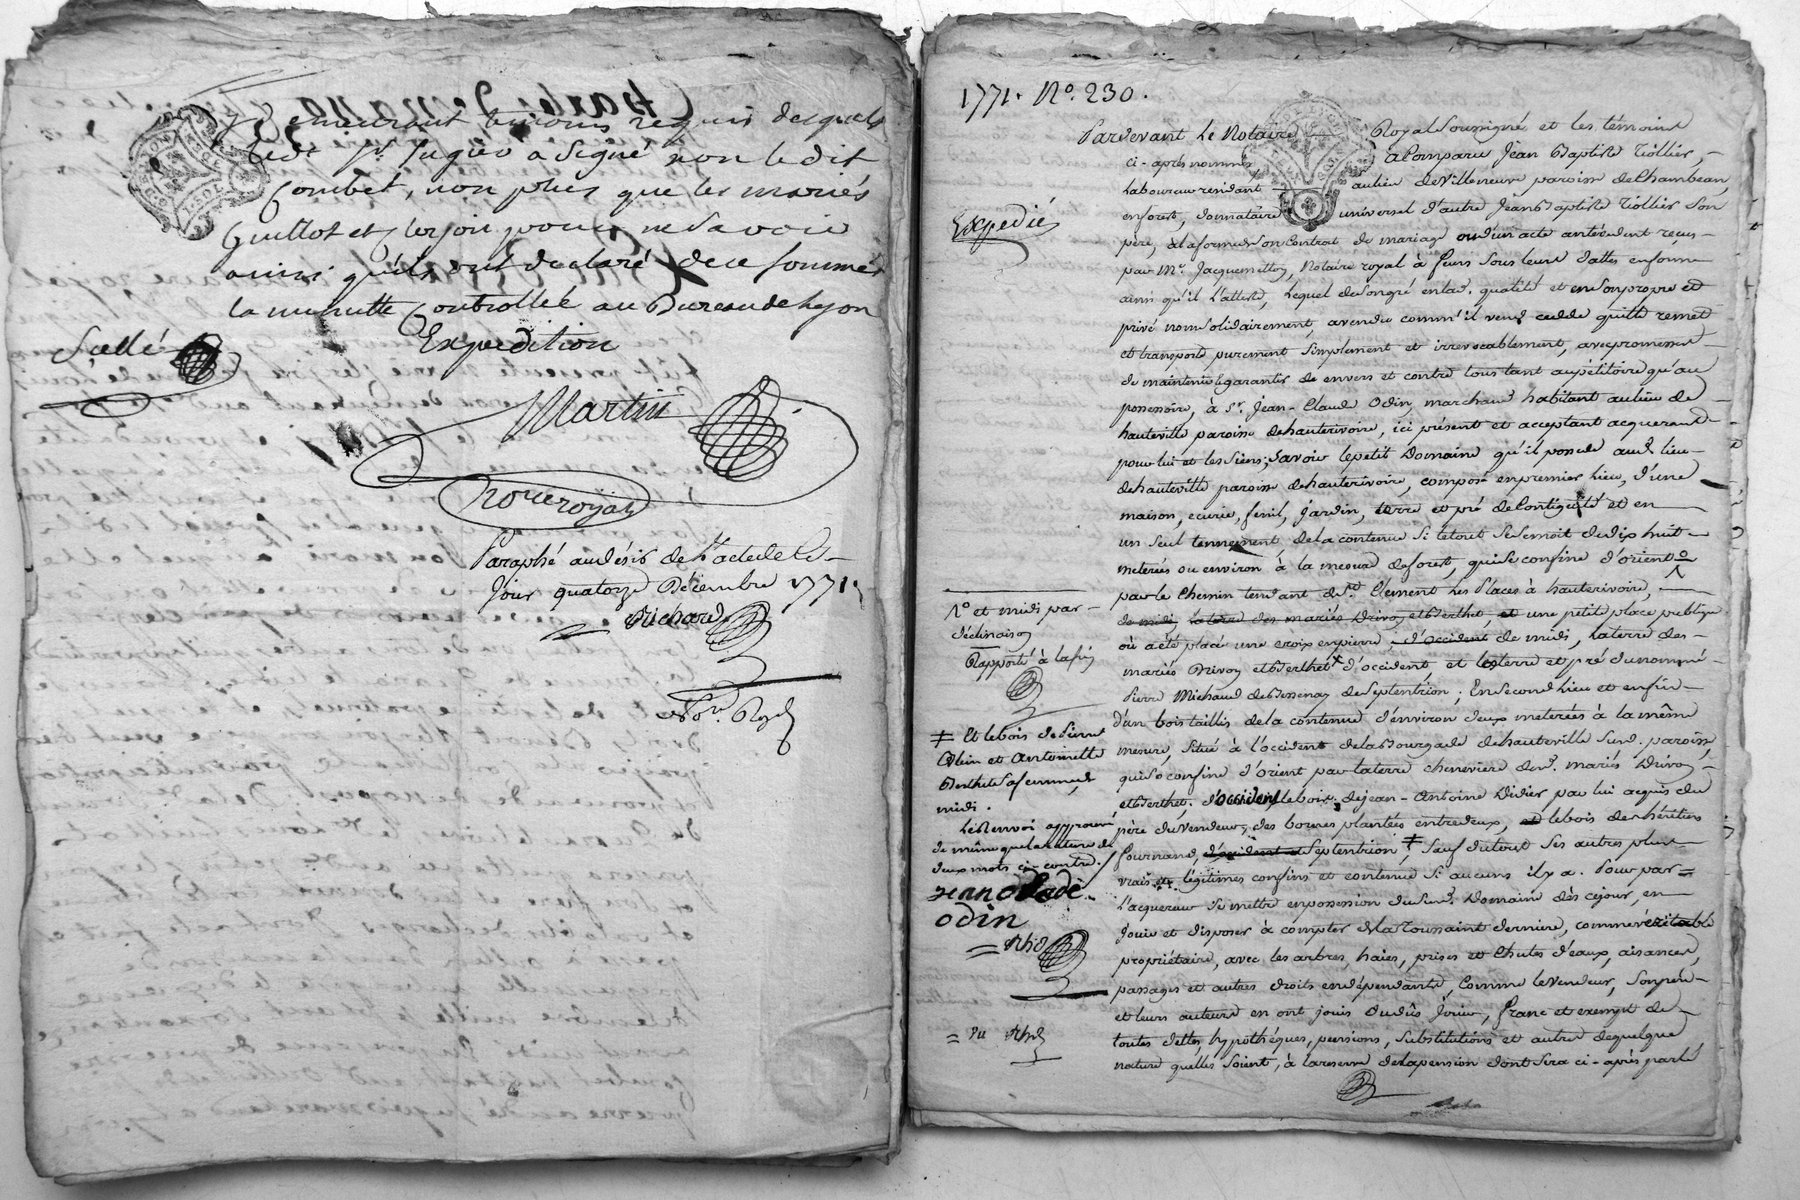 y demeurant temoins requis desquels
ledt Sr. Jugieu a Signé non le dit
Combet, non plus que les mariés
Guillot et pour ne Savoir
ainsi qu'ils ont declaré de ce Sommés
la minutte Controllée au Bureau de Lyon
Expedition
Scellé
Martin
Noure royal
Paraphé au désir de l'acte de ce
Jour quatorze Décembre 1771.
Richard
1771. No. 230.
Pardevant Le Notaire Royal Soussigné et les témoins
ci-après nommés a Comparu Jean Baptiste Tiollier,
Laboureur residant au lieu de Villeneuve paroisse de Chambeon,
en forest, donnataire universel d'autre Jean Baptiste Tiollier Son
père, a la forme de Son Contrat de mariage ou d'un acte antécedent reçus
par Me. Jacquemetton, Notaire royal à feurs Sous leurs dattes en forme
ainsi qu'il l'atteste, Lequel de Son gré en lad. qualité et en Son propre et
privé nom Solidairement, a vendu comm'il vend cedde quitte remet
et transporte purement Simplement et irrevocablement, avec promesse
de maintenir & garantir de envers et contre tous tant au pétitoire qu'au
possessoire, à Sr. Jean-Claude Odin, marchand habitant au lieu de
hauteville paroisse de hauterivoire, ici présent et acceptant acquereur
pour lui et les Siens; Savoir le petit Domaine qu'il possede aud. lieu
de hauteville paroisse de hauterivoire, composé en premier Lieu, d'une
maison, ecurie, fenil, Jardin, terre et pré de Contiguité et en
un Seul tennement de la contenue Si le tout Se Semoit de dix huit
meterées ou environ à la mesure de forest, qui Se confine d'orient
par le Chemin tendant de St. Clement Les Places à hauterivoire,
de midi, la terre des mariés Drivon et Berthet, et une petite place publique
où a été placé une croix en pierre, d'occident de midi, la terre des
mariés Drivon et Berthet d'occident, et les terre et pré du nommé
Pierre Michaud de Bessenay de Septentrion; En Second Lieu et enfin
d'un bois taillis de la contenue d'environ deux meterées à la même
mesure, Situé à l'occident de la Bourgade de hauteville Susd. paroisse,
qui Se confine d'orient par la terre cheneviere desd. mariés Drivon
et Berthet, d'occident le bois de jean-Antoine Didier par lui acquis du
père du vendeur, des bornes plantées entre deux, et le bois des héritiers
fournand, d'occident et Septentrion, ≠ Sauf du tout Ses autres plus
vrais et légitimes confins et contenue Si aucuns il y a. Pour par
l'acquereur Se mettre en possession du Susd. Domaine dès ce jour, en
Jouir et disposer à compter de la Toussaint derniere, comme véritable
propriétaire, avec les arbres, haies, prises et Chutes d'eaux, aisances,
passages et autres droits en dépendants, Comme le Vendeur, Son père
et leurs auteurs en ont joui ou dûs Jouir, franc et exempt de
toutes dettes, hypothéques, pensions, Substitutions et autres de quelque
nature quelles Soient, à la reserve de la pension dont Sera ci-après parlé
Expedié
1º et midi par
déclinaison
Rapporté à la fin
≠ Et le bois de Pierre
Blein et Antoinette
Berthet Sa femme de
midi.
Le Renvoi approuvé
de même que la rature de
deux mots ci contre.
jean clade
odin